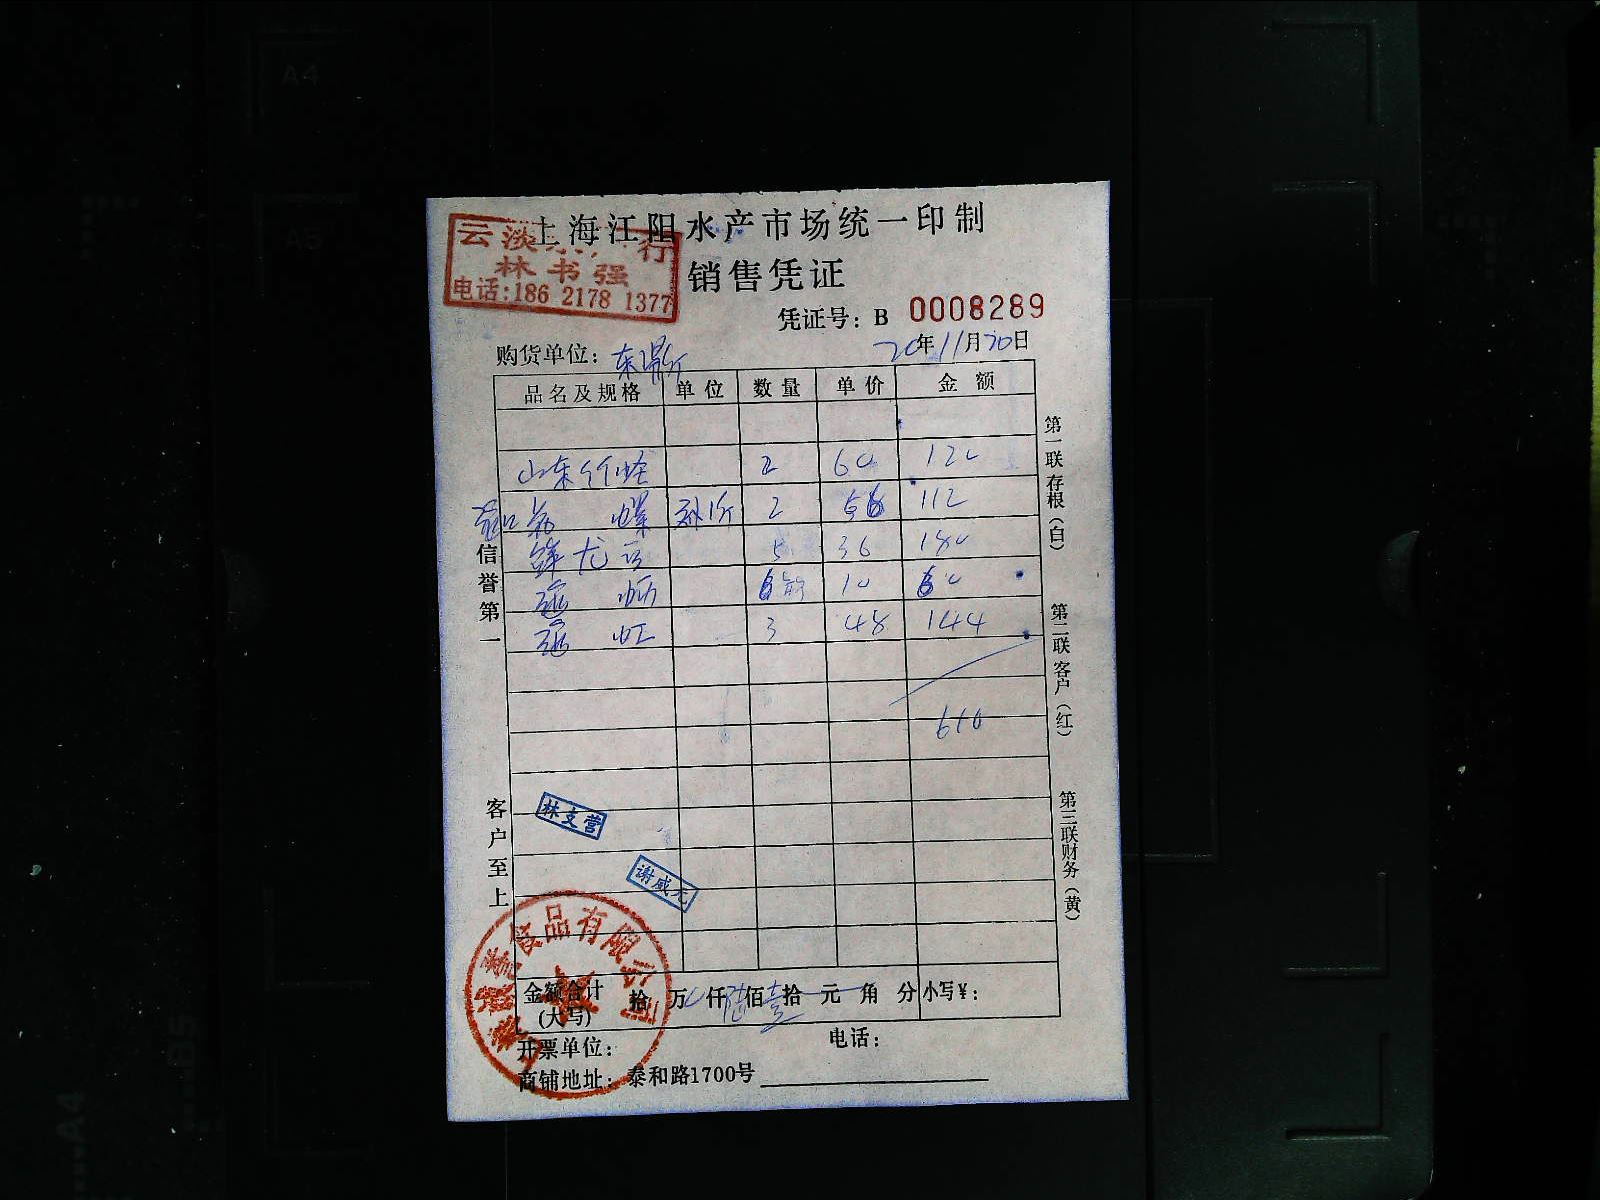 上海江阳水产市场统一印制
云淡 行
林书强
电话:186 2178 1377
销售凭证
凭证号: B 0008289
20年11月20日
购货单位:
品名及规格 单位 数量 单价 金额
山东竹蛏 2 60 120
螺 2 56 112
鲜尤 5 36 180
6 10 60
虹 3 48 144
610
信誉第一
客户至上
第一联存根(白)
第二联客户(红)
第三联财务(黄)
林支营
谢威元
食品有限公司
金额合计(大写) 拾 万 仟 陆佰壹拾 元 角 分 小写¥:
开票单位: 电话:
商铺地址: 泰和路1700号